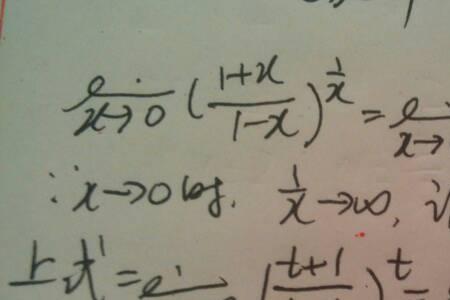 lim x→0 (1+x / 1-x)^(1/x) = lim x→
∵ x→0时, 1/x→∞,
上式 = lim (t+1 /)^t